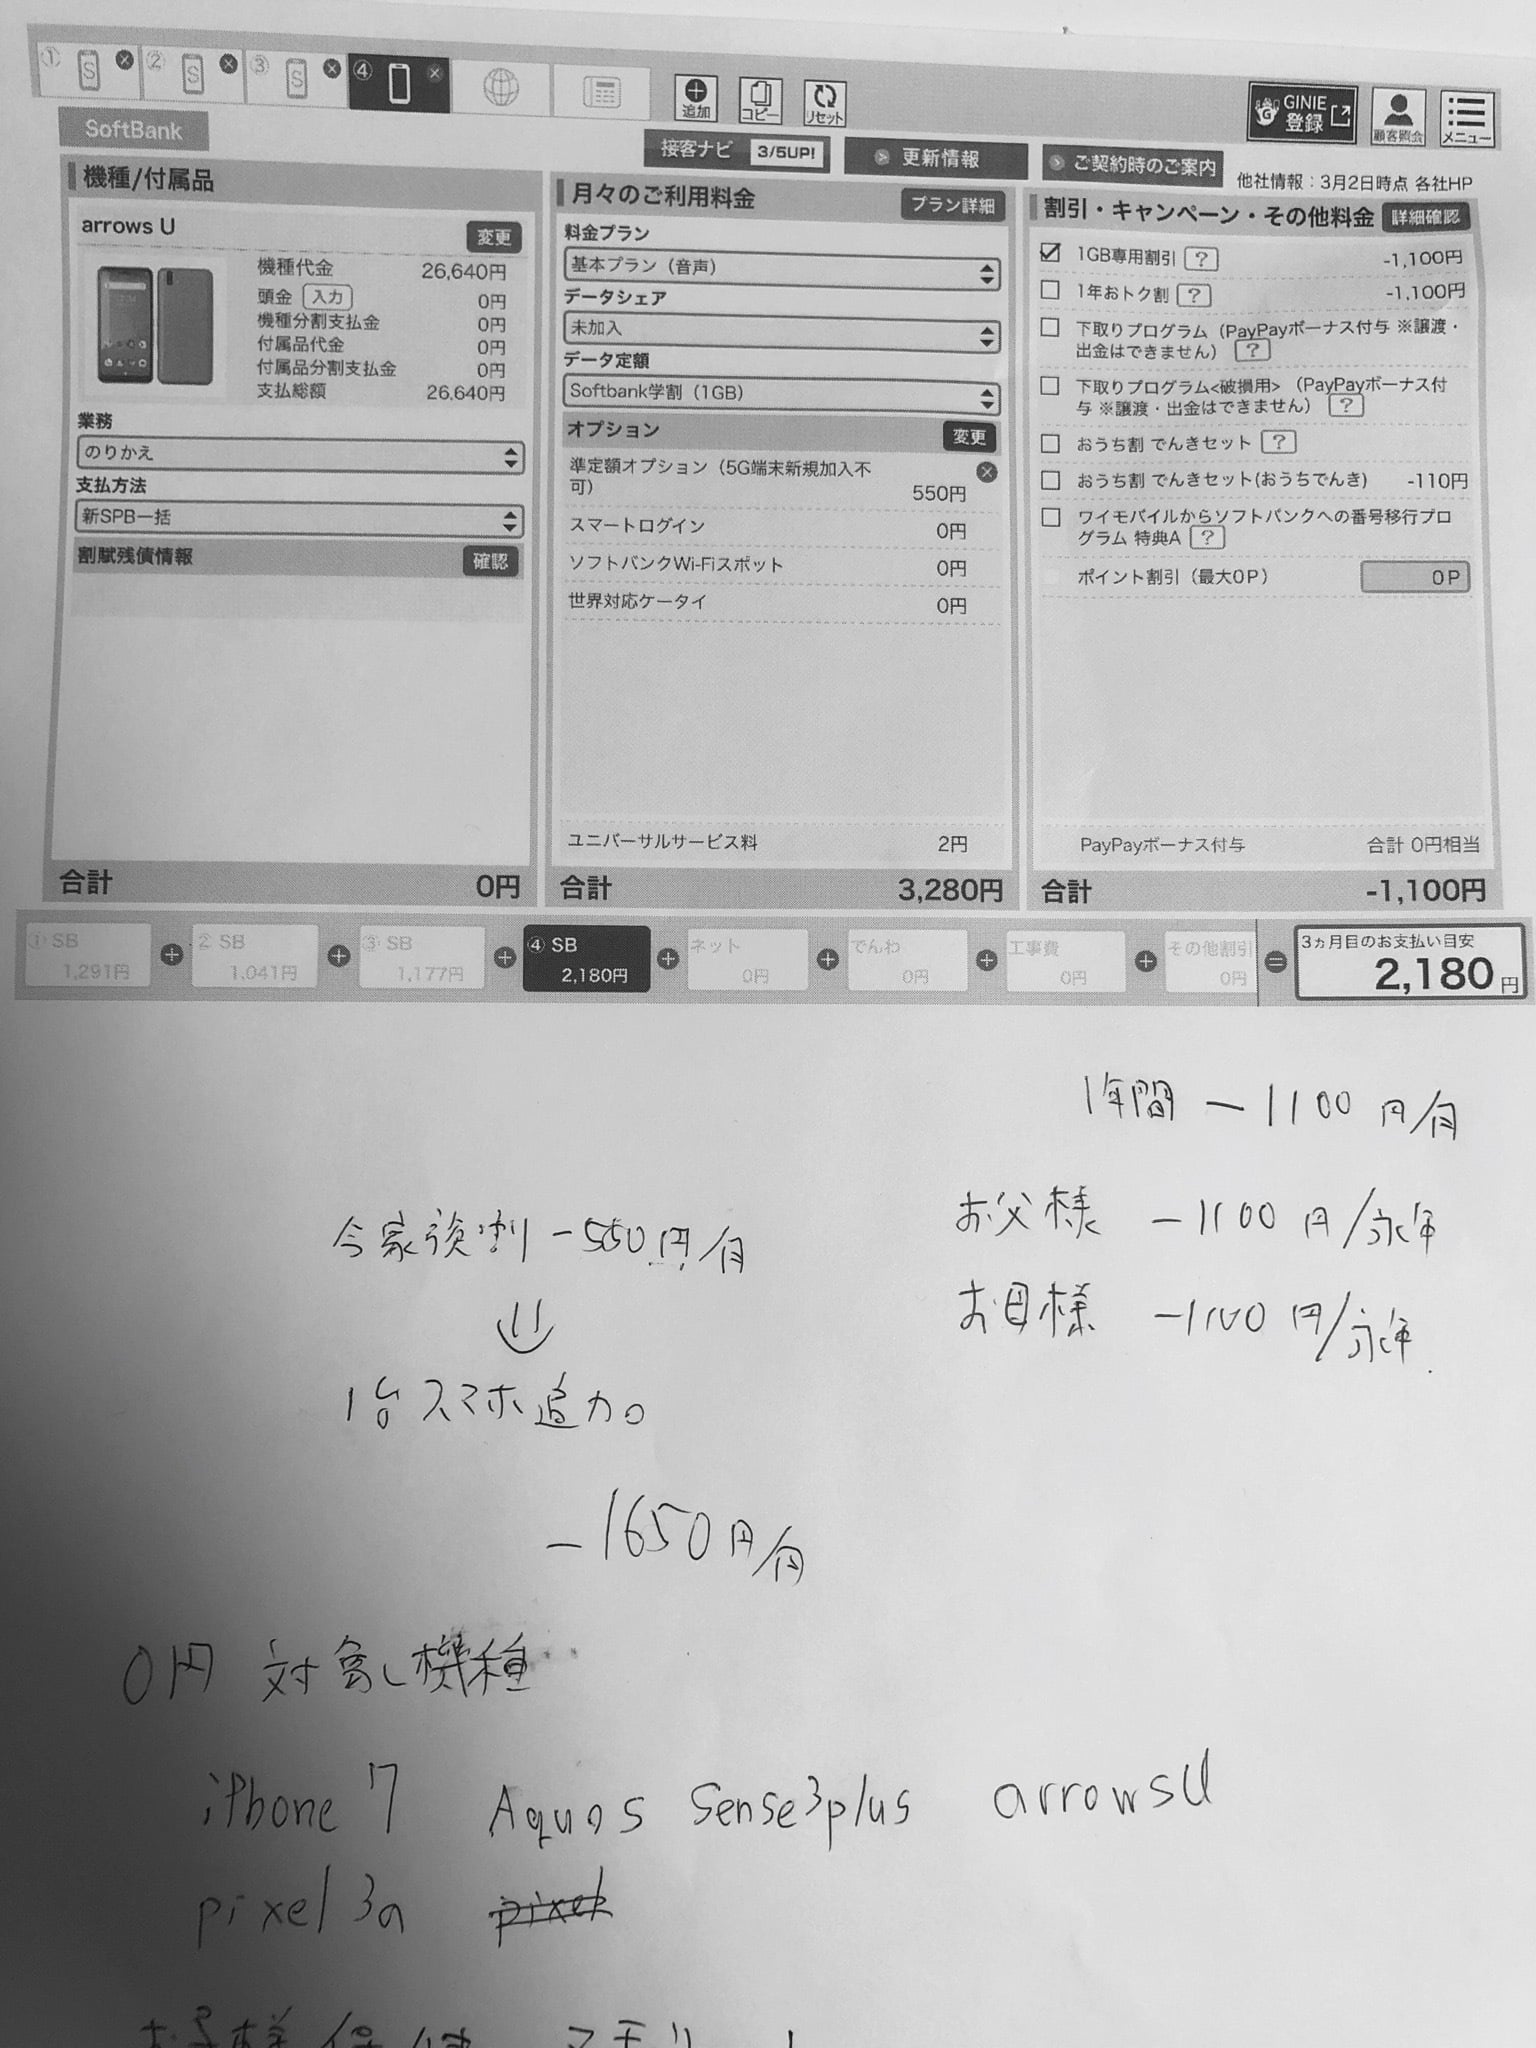 ① S ② S ③ S ④
追加 コピー リセット
GINIE 登録 顧客照会 メニュー
SoftBank
接客ナビ 3/5UP! 更新情報 ご契約時のご案内
他社情報：3月2日時点 各社HP
機種/付属品
arrows U 変更
機種代金 26,640円
頭金 入力 0円
機種分割支払金 0円
付属品代金 0円
付属品分割支払金 0円
支払総額 26,640円
業務
のりかえ
支払方法
新SPB一括
割賦残債情報 確認
合計 0円
月々のご利用料金 プラン詳細
料金プラン
基本プラン（音声）
データシェア
未加入
データ定額
Softbank学割（1GB）
オプション 変更
準定額オプション（5G端末新規加入不
可） 550円
スマートログイン 0円
ソフトバンクWi-Fiスポット 0円
世界対応ケータイ 0円
ユニバーサルサービス料 2円
合計 3,280円
割引・キャンペーン・その他料金 詳細確認
1GB専用割引 ? -1,100円
1年おトク割 ? -1,100円
下取りプログラム（PayPayボーナス付与 ※譲渡・
出金はできません） ?
下取りプログラム<破損用>（PayPayボーナス付
与 ※譲渡・出金はできません） ?
おうち割 でんきセット ?
おうち割 でんきセット(おうちでんき) -110円
ワイモバイルからソフトバンクへの番号移行プロ
グラム 特典A ?
ポイント割引（最大0P） 0P
PayPayボーナス付与 合計 0円相当
合計 -1,100円
① SB 1,291円 + ② SB 1,041円 + ③ SB 1,177円 + ④ SB 2,180円 + ネット 0円 + でんわ 0円 + 工事費 0円 + その他割引 0円 = 3ヵ月目のお支払い目安 2,180円
1年間 -1100円/月
お父様 -1100円/永年
お母様 -1100円/永年
今家族割 -550円/月
1台スマホ追加
-1650円/月
0円 対象し機種
iPhone 7 Aquos Sense3plus arrowsU
pixel 3a pixel